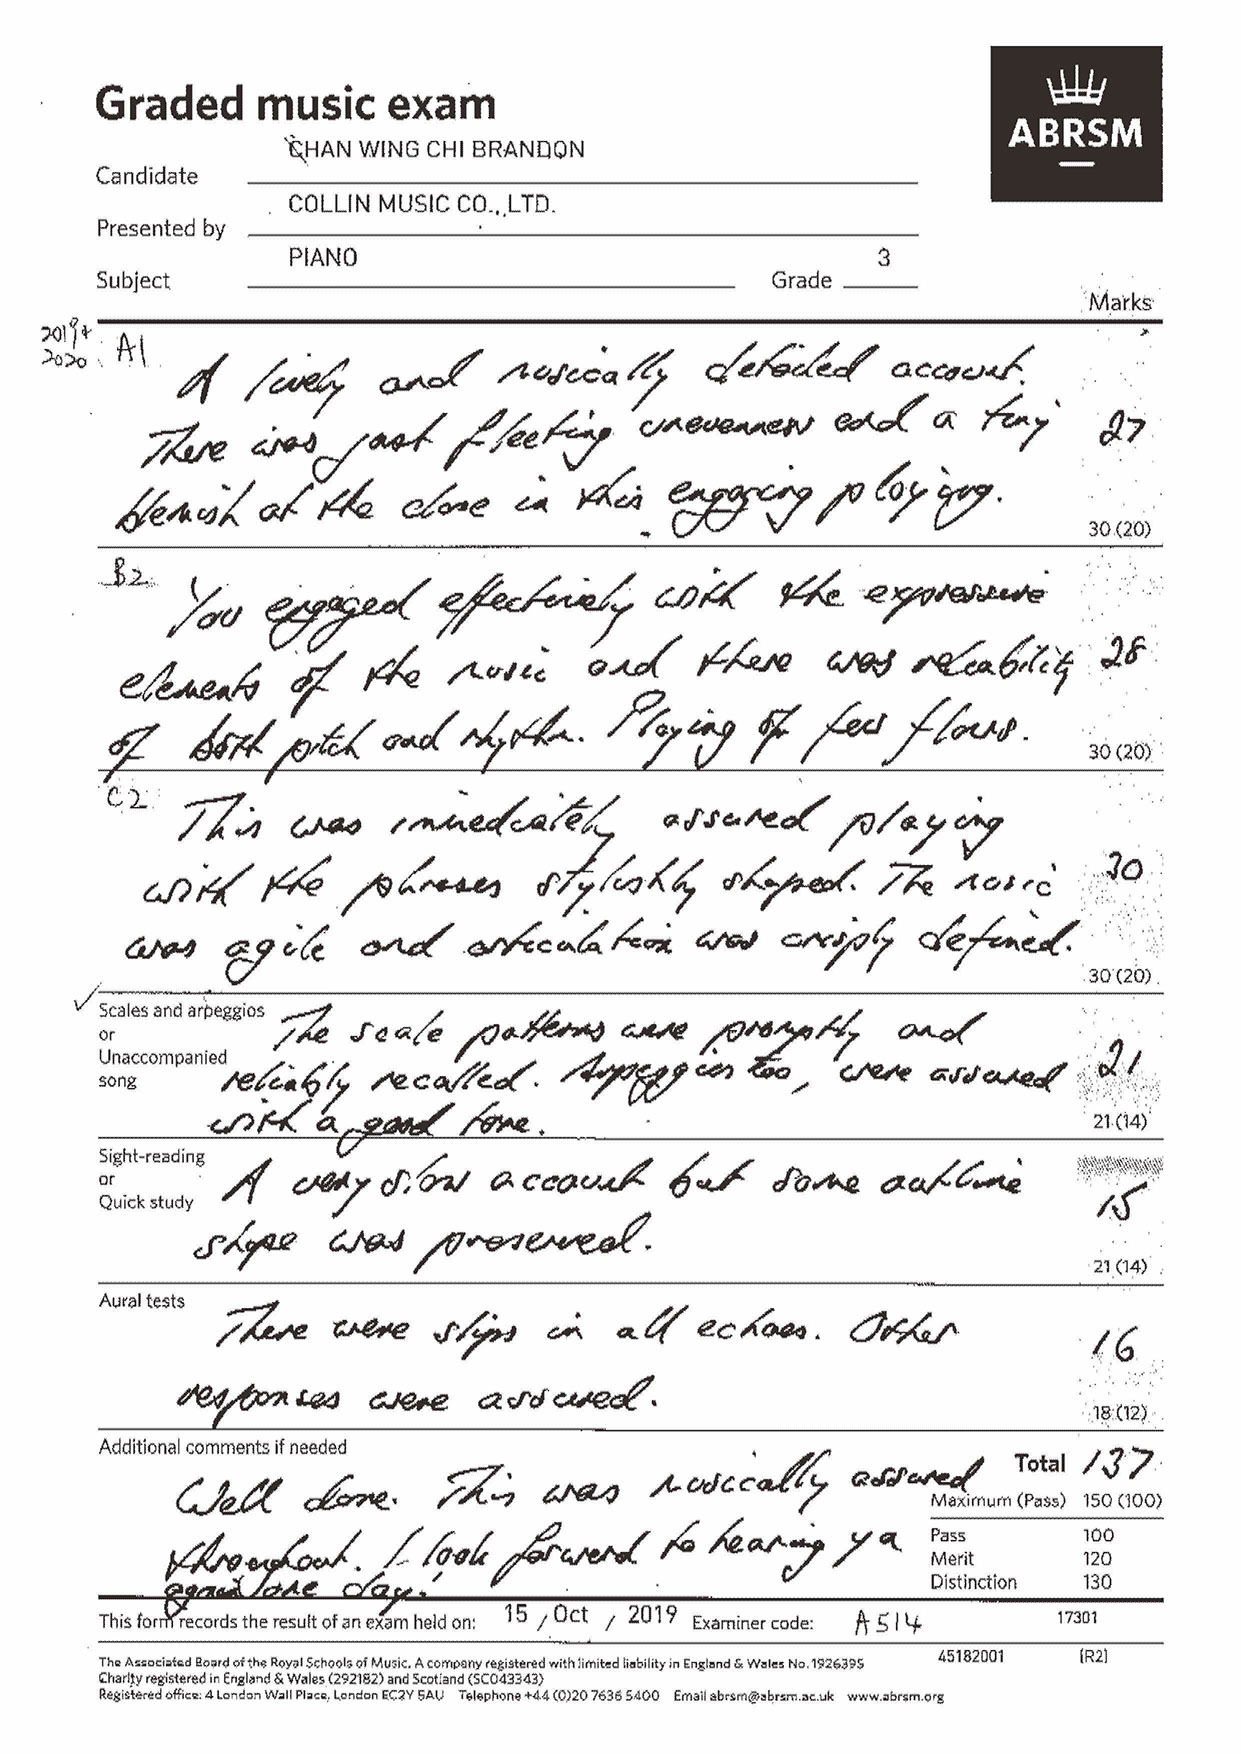 Graded music exam
ABRSM
CHAN WING CHI BRANDON
Candidate
COLLIN MUSIC CO., LTD.
Presented by
PIANO 3
Subject Grade
Marks
2019+
2020 A1
A lively and musically detailed account.
There was just fleeting unevenness and a tiny 27
blemish at the close in this engaging playing.
30 (20)
B2
You engaged effectively with the expressive
elements of the music and there was reliability 28
of both pitch and rhythm. Playing of few flaws.
30 (20)
C2
This was immediately assured playing
with the phrases stylishly shaped. The music 30
was agile and articulation was crisply defined.
30 (20)
✓ Scales and arpeggios
or
Unaccompanied
song
The scale patterns were promptly and
reliably recalled. Arpeggios too, were assured 21
with a good tone.
21 (14)
Sight-reading
or
Quick study
A very slow account but some outline 15
shape was preserved.
21 (14)
Aural tests
There were slips in all echoes. Other 16
responses were assured.
18 (12)
Additional comments if needed
Well done. This was musically assured
throughout. I look forward to hearing ya
again one day!
Total 137
Maximum (Pass) 150 (100)
Pass 100
Merit 120
Distinction 130
This form records the result of an exam held on: 15 / Oct / 2019 Examiner code: A514 17301
45182001 (R2)
The Associated Board of the Royal Schools of Music. A company registered with limited liability in England & Wales No. 1926395
Charity registered in England & Wales (292182) and Scotland (SC043343)
Registered office: 4 London Wall Place, London EC2Y 5AU Telephone +44 (0)20 7636 5400 Email abrsm@abrsm.ac.uk www.abrsm.org